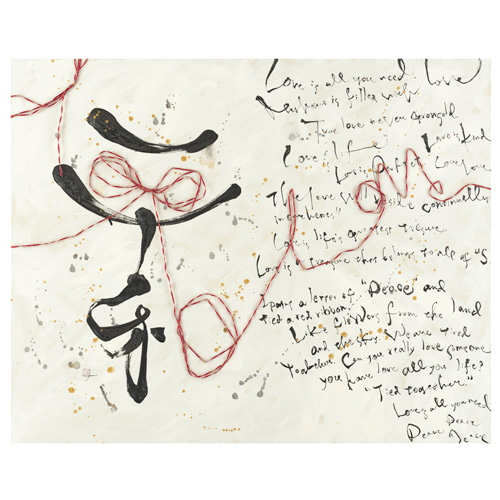 Love is all you need. Love
is filled with
True love never grows old
Love is life Love is kind
Love is Perfect Love Love
True love will reside continually
in
Love is life's greatest treasure.
Love is a treasure that belongs to all of us
I pens a letter of "Peace" and
tied a red ribbon.
Like flowers from the land
and the sky. We are tied
Together. Can you really love someone
you have love all you life?
"Tied together."
Love is all you need
Peace Peace
Peace Peace